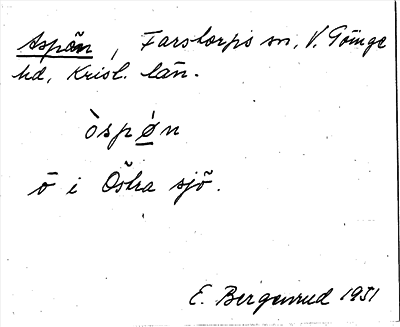 Aspön, Farstorps sn, V. Göinge
hd, Krist. län.
òspǿn
ö i Östra sjö.
E. Bergenrud 1951